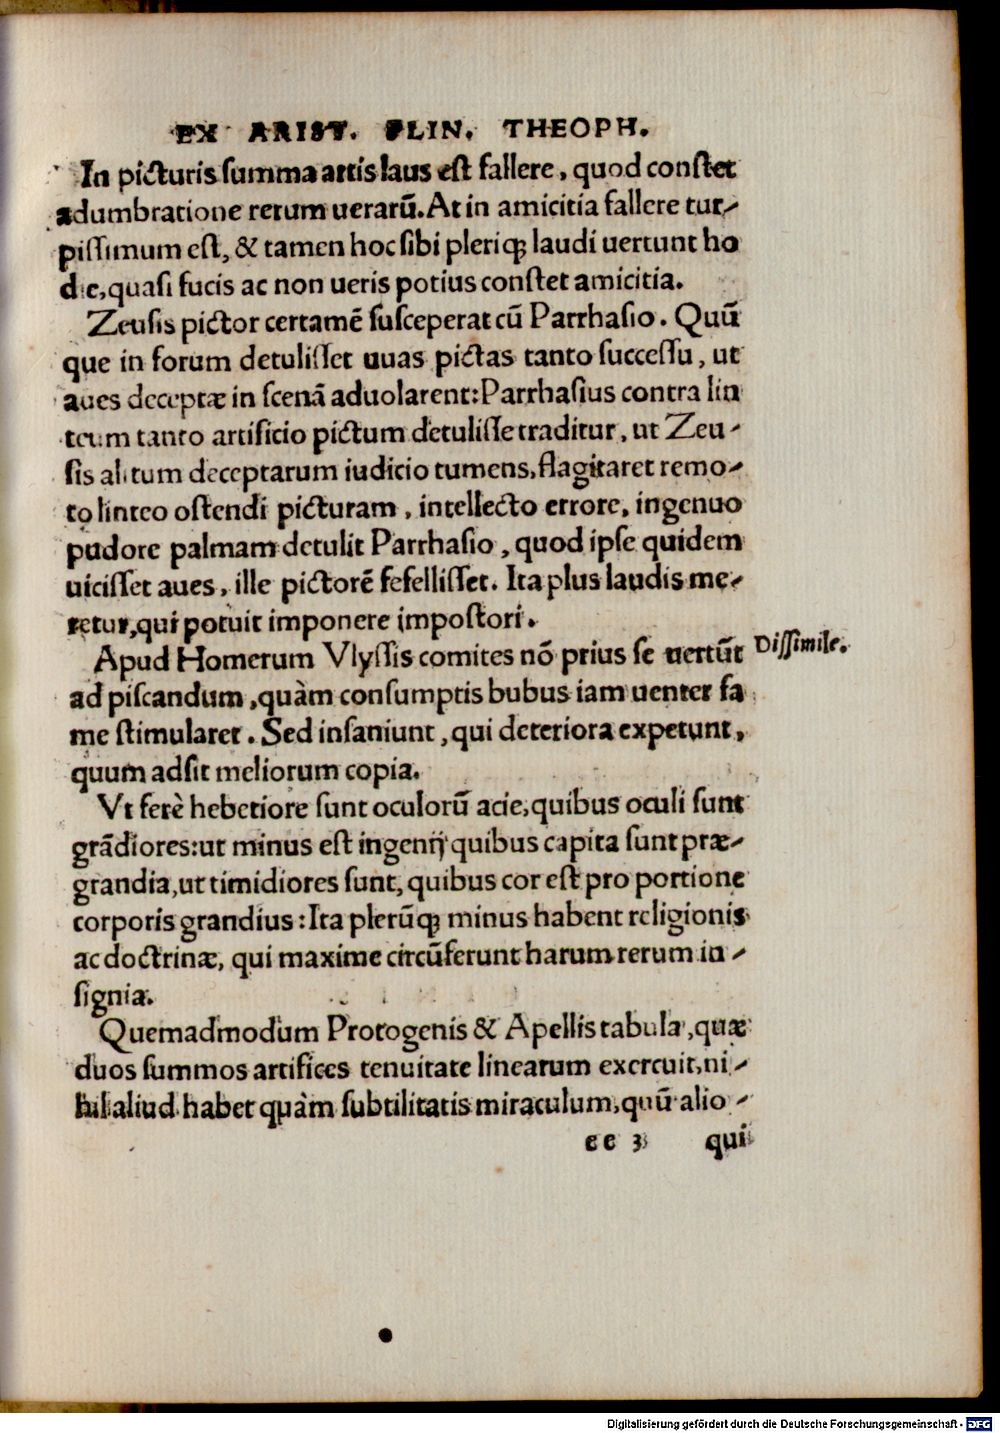 EX ARIST. PLIN. THEOPH.
In picturis summa artis laus est fallere, quod constet
adumbratione rerum uerarũ. At in amicitia fallere tur-
pissimum est, & tamen hoc sibi pleriq; laudi uertunt ho
die, quasi fucis ac non ueris potius constet amicitia.
Zeusis pictor certamẽ susceperat cũ Parrhasio. Quũ
que in forum detulisset uuas pictas tanto successu, ut
aues deceptæ in scenã aduolarent: Parrhasius contra lin
teum tanto artificio pictum detulisse traditur, ut Zeu-
sis alitum deceptarum iudicio tumens, flagitaret remo-
to linteo ostendi picturam, intellecto errore, ingenuo
pudore palmam detulit Parrhasio, quod ipse quidem
uicisset aues, ille pictorẽ fefellisset. Ita plus laudis me-
retur, qui potuit imponere impostori.
Apud Homerum Vlyssis comites nõ prius se uertũt Dissimile.
ad piscandum, quàm consumptis bubus iam uenter fa
me stimularet. Sed insaniunt, qui deteriora expetunt,
quum adsit meliorum copia.
Vt ferè hebetiore sunt oculorũ acie, quibus oculi sunt
grãdiores: ut minus est ingenij quibus capita sunt præ-
grandia, ut timidiores sunt, quibus cor est pro portione
corporis grandius: Ita plerũq; minus habent religionis
ac doctrinæ, qui maxime circũferunt harum rerum in-
signia.
Quemadmodum Protogenis & Apellis tabula, quæ
duos summos artifices tenuitate linearum exercuit, ni-
hil aliud habet quàm subtilitatis miraculum, quũ alio-
ee 3 qui
Digitalisierung gefördert durch die Deutsche Forschungsgemeinschaft - DFG